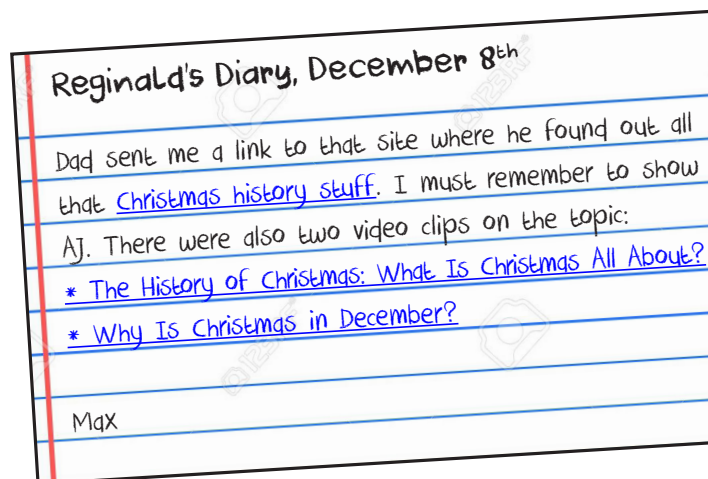 Reginald's Diary, December 8th
Dad sent me a link to that site where he found out all
that Christmas history stuff. I must remember to show
AJ. There were also two video clips on the topic:
* The History of Christmas: What Is Christmas All About?
* Why Is Christmas in December?
Max
123RF
123RF